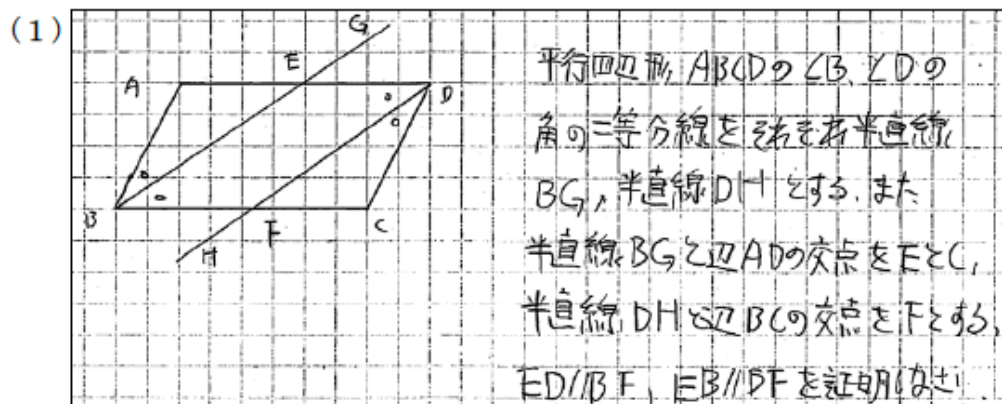 (1)
G
E
A
D
B
F
C
H
平行四辺形ABCDの∠B、∠Dの
角の二等分線をそれぞれ半直線
BG, 半直線DHとする. また
半直線BGと辺ADの交点をEとし,
半直線DHと辺BCの交点をFとする.
ED//BF, EB//BFを証明しなさい.